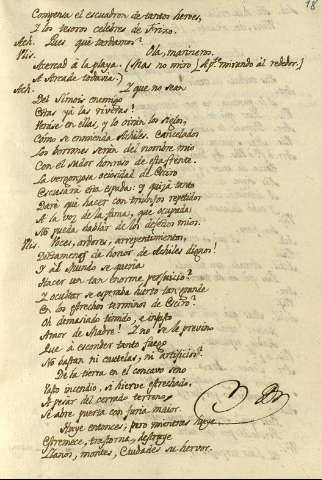 18
Compenia el escuadron de tantos heroes,
Y los tesoros celebres de Frixo.
Ach. Pues qué tardamos?
Ulis. Ola, marineros.
Acercad á la playa. (Mas no miro [Ap. mirando al rededor.]
A Arcade todavia.)
Ach. Y que no sean
Del Simois enemigo
Estas yá las riveras!
Verase en ellas, y lo oirán los siglos,
Como se enmienda Achiles. Cancelados
Los borrones serán del nombre mio
Con el sudor honroso de esta frente.
La vergonzosa ociosidad de Sciro
Escusará esta espada: y quizá tanto
Dará que hacer con triunfos repetidos
A la voz de la fama, que ocupada
No pueda hablar de los defectos mios.
Ulis. Voces, ardores, arrepentimientos,
Dictamenes de honor de Achiles dignos!
Y al Mundo se queria
Hacer un tan enorme perjuicio?
Y ocultar se esperaba hurto tan grande
En los estrechos terminos de Sciro?
Oh demasiado timido, e injusto
Amor de Madre! Y no se le previno
Que á esconder tanto fuego
No bastan ni cautelas, ni artificios?
De la tierra en el concavo seno
Vasto incendio, si hierve estrechado,
A pesar del cerrado terreno,
Se abre puerta con furia maior.
Huye entonces; pero mientras huye
Estremece, trastorna, destroye
Llanos, montes, Ciudades su hervor.